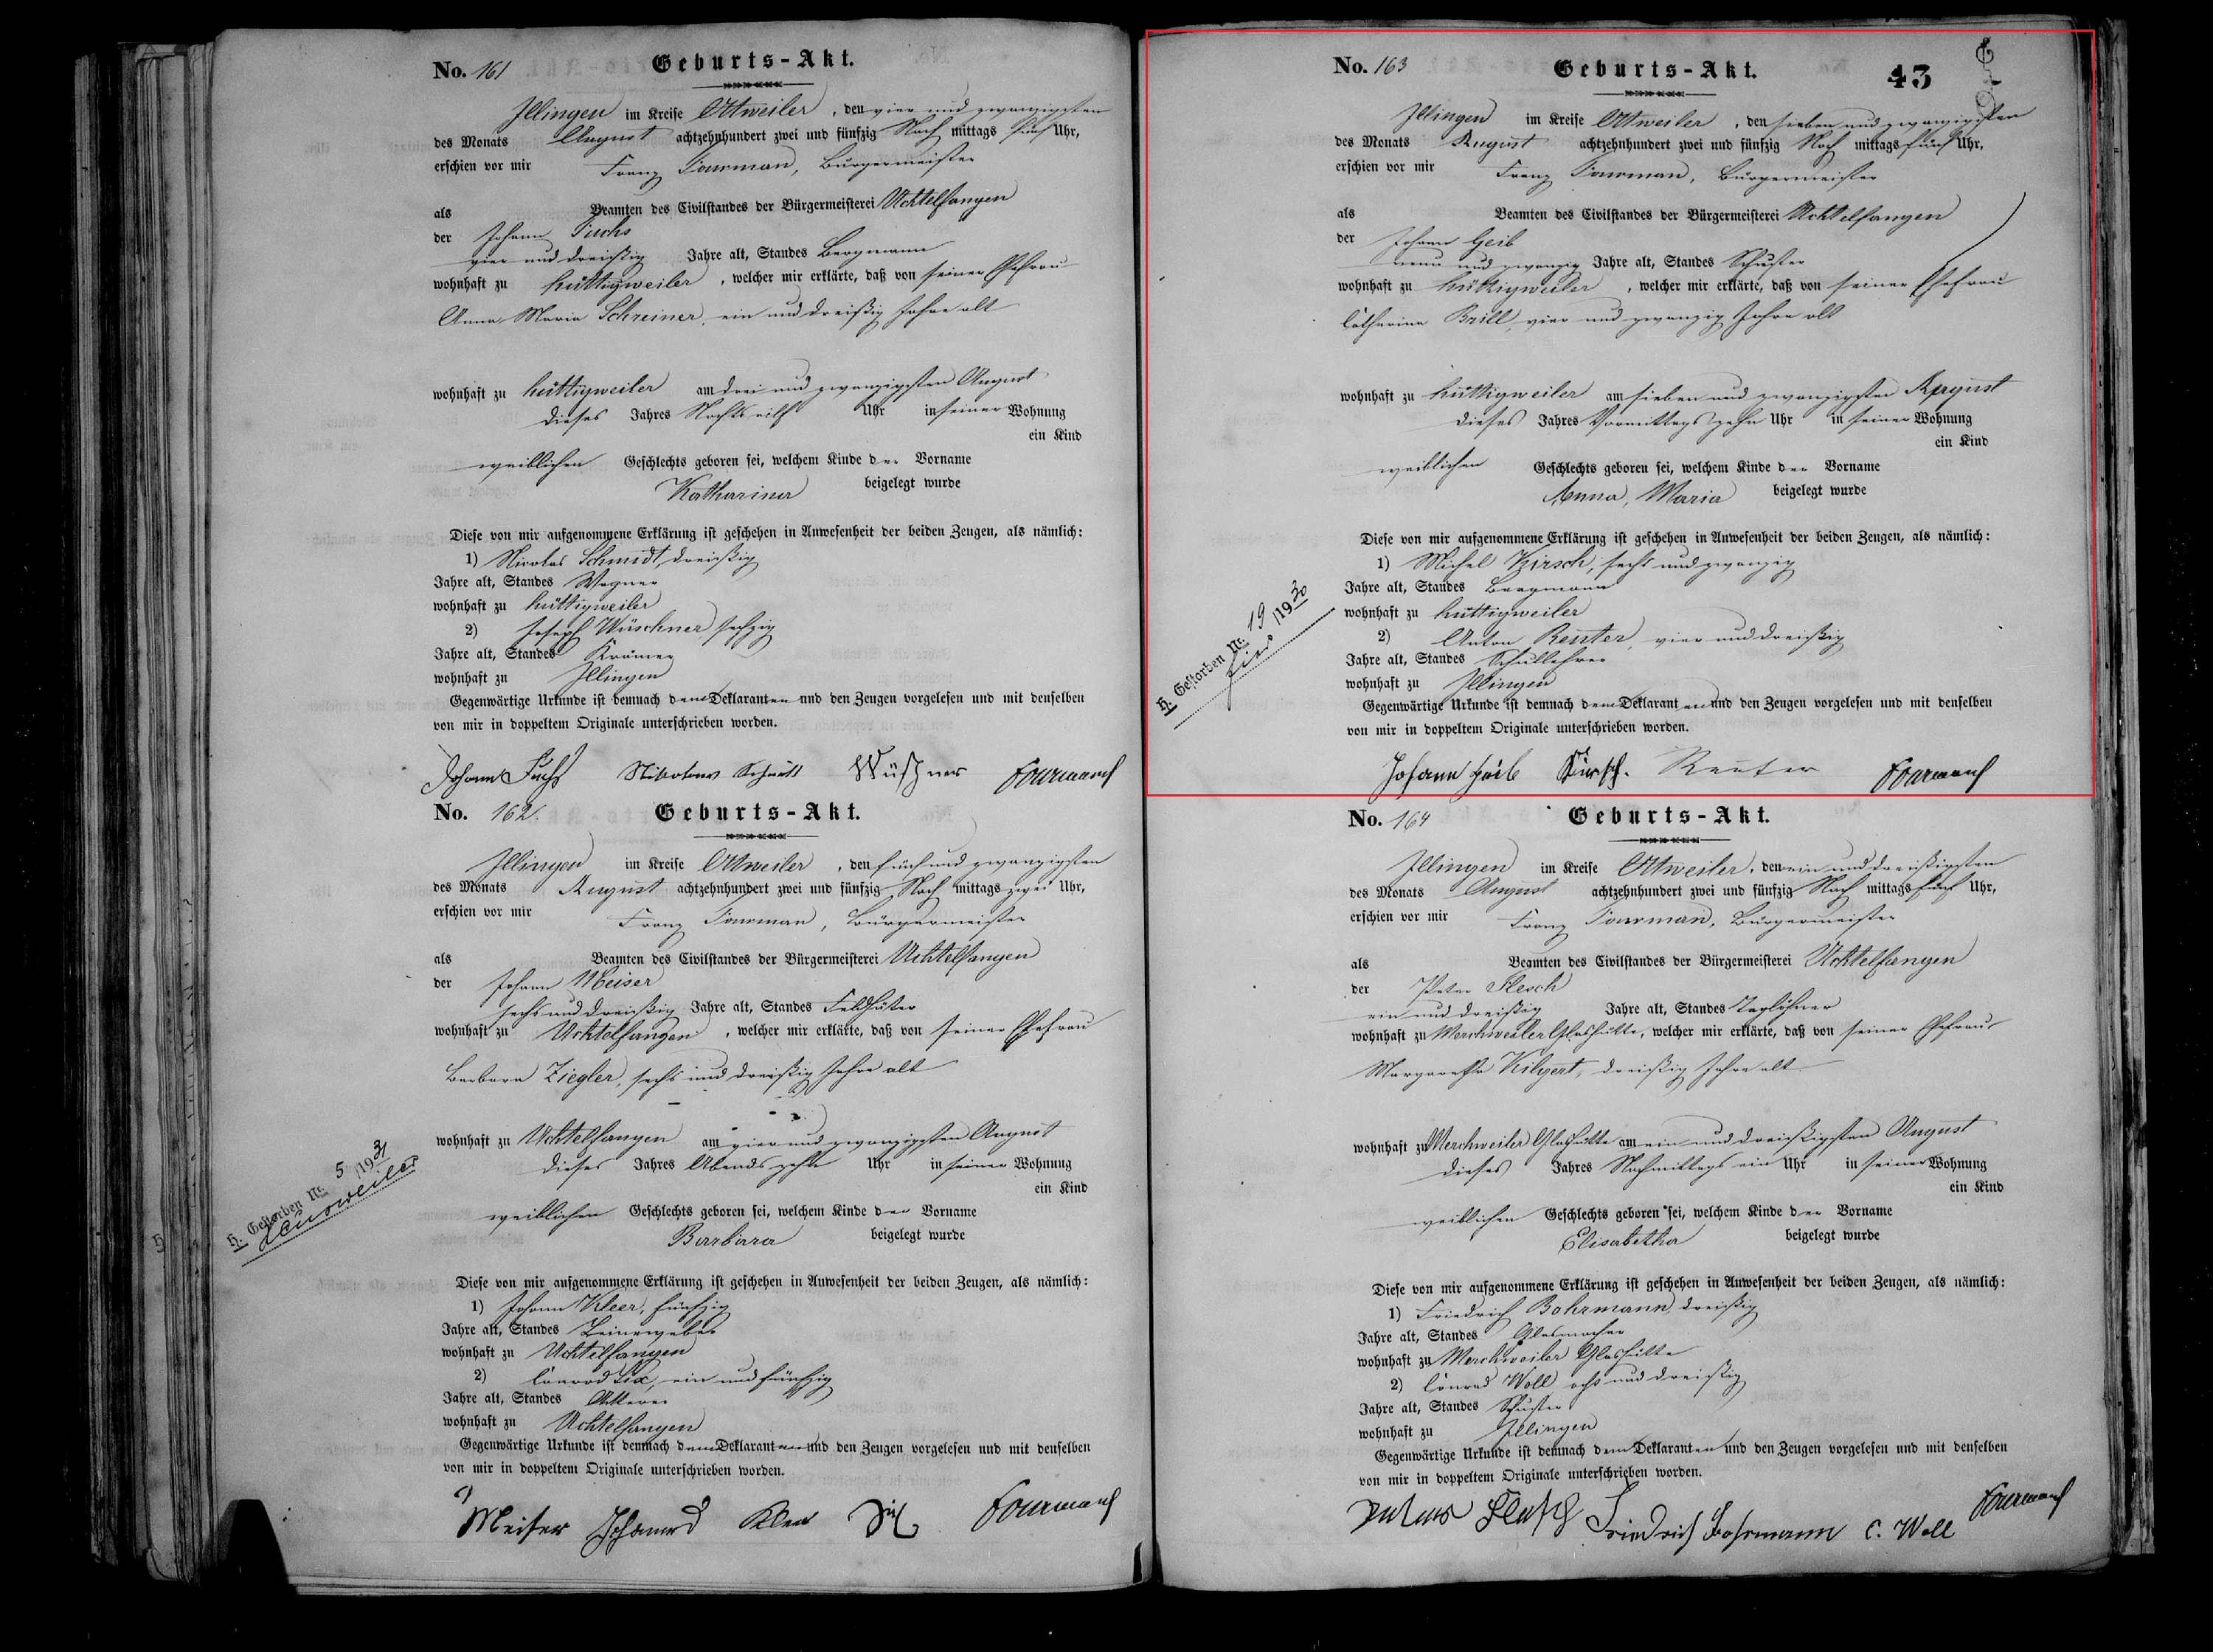 No. 161 Geburts-Akt.
Illingen im Kreise Ottweiler, den vier und zwanzigsten
des Monats August achtzehnhundert zwei und fünfzig Nach mittags fünf Uhr,
erschien vor mir Franz Fourman, Bürgermeister
als Beamten des Civilstandes der Bürgermeisterei Uchtelfangen
der Johann Fuchs
vier und dreißig Jahre alt, Standes Bergmann
wohnhaft zu Hüttigweiler, welcher mir erklärte, daß von seiner Ehefrau
Anna Maria Schreiner, ein und dreißig Jahre alt
wohnhaft zu Hüttigweiler am drei und zwanzigsten August
dieses Jahres Nachts eilf Uhr in seiner Wohnung
ein Kind
weiblichen Geschlechts geboren sei, welchem Kinde der Vorname
Katharina beigelegt wurde
Diese von mir aufgenommene Erklärung ist geschehen in Anwesenheit der beiden Zeugen, als nämlich:
1) Nicolas Schmidt, dreißig
Jahre alt, Standes Wagner
wohnhaft zu Hüttigweiler
2) Joseph Wüschner sechzig
Jahre alt, Standes Krämer
wohnhaft zu Illingen
Gegenwärtige Urkunde ist demnach dem Deklaranten und den Zeugen vorgelesen und mit denselben
von mir in doppeltem Originale unterschrieben worden.
Johann Fuchs Nikolaus Schmitt Wüschner Fourmann
No. 162. Geburts-Akt.
Illingen im Kreise Ottweiler, den fünf und zwanzigsten
des Monats August achtzehnhundert zwei und fünfzig Nach mittags zwei Uhr,
erschien vor mir Franz Fourman, Bürgermeister
als Beamten des Civilstandes der Bürgermeisterei Uchtelfangen
der Johann Meiser
sechs und dreißig Jahre alt, Standes Feldhüter
wohnhaft zu Uchtelfangen, welcher mir erklärte, daß von seiner Ehefrau
Barbara Ziegler, sechs und dreißig Jahre alt
wohnhaft zu Uchtelfangen am vier und zwanzigsten August
dieses Jahres Abends zehn Uhr in seiner Wohnung
ein Kind
weiblichen Geschlechts geboren sei, welchem Kinde der Vorname
Barbara beigelegt wurde
H. Gestorben Nr. 5 /1931
Heusweiler
Diese von mir aufgenommene Erklärung ist geschehen in Anwesenheit der beiden Zeugen, als nämlich:
1) Johann Kleer, fünfzig
Jahre alt, Standes Leinenweber
wohnhaft zu Uchtelfangen
2) Conrad Six, ein und fünfzig
Jahre alt, Standes Ackerer
wohnhaft zu Uchtelfangen
Gegenwärtige Urkunde ist demnach dem Deklaranten und den Zeugen vorgelesen und mit denselben
von mir in doppeltem Originale unterschrieben worden.
Meiser Johann Kleer Six Fourmann
43
No. 163 Geburts-Akt.
Illingen im Kreise Ottweiler, den sieben und zwanzigsten
des Monats August achtzehnhundert zwei und fünfzig Nach mittags fünf Uhr,
erschien vor mir Franz Fourman, Bürgermeister
als Beamten des Civilstandes der Bürgermeisterei Uchtelfangen
der Johann Geib
neun und zwanzig Jahre alt, Standes Schuster
wohnhaft zu Hüttigweiler, welcher mir erklärte, daß von seiner Ehefrau
Catharina Brill, vier und zwanzig Jahre alt
wohnhaft zu Hüttigweiler am sieben und zwanzigsten August
dieses Jahres Vormittags zehn Uhr in seiner Wohnung
ein Kind
weiblichen Geschlechts geboren sei, welchem Kinde der Vorname
Anna, Maria beigelegt wurde
Diese von mir aufgenommene Erklärung ist geschehen in Anwesenheit der beiden Zeugen, als nämlich:
1) Michel Kirsch, sechs und zwanzig
Jahre alt, Standes Bergmann
wohnhaft zu Hüttigweiler
H. Gestorben Nr. 19 /1930
hier
2) Anton Reuter, vier und dreißig
Jahre alt, Standes Schullehrer
wohnhaft zu Illingen
Gegenwärtige Urkunde ist demnach dem Deklaranten und den Zeugen vorgelesen und mit denselben
von mir in doppeltem Originale unterschrieben worden.
Johann Geib Kirsch. Reuter Fourmann
No. 164 Geburts-Akt.
Illingen im Kreise Ottweiler, den ein und dreißigsten
des Monats August achtzehnhundert zwei und fünfzig Nach mittags fünf Uhr,
erschien vor mir Franz Fourman, Bürgermeister
als Beamten des Civilstandes der Bürgermeisterei Uchtelfangen
der Peter Flesch
ein und dreißig Jahre alt, Standes Taglöhner
wohnhaft zu Merchweiler Glashütte, welcher mir erklärte, daß von seiner Ehefrau
Margaretha Kilgert, dreißig Jahre alt
wohnhaft zu Merchweiler Glashütte am ein und dreißigsten August
dieses Jahres Nachmittags ein Uhr in seiner Wohnung
ein Kind
weiblichen Geschlechts geboren sei, welchem Kinde der Vorname
Elisabetha beigelegt wurde
Diese von mir aufgenommene Erklärung ist geschehen in Anwesenheit der beiden Zeugen, als nämlich:
1) Friedrich Bohrmann, dreißig
Jahre alt, Standes Glasmacher
wohnhaft zu Merchweiler Glashütte
2) Conrad Woll acht und dreißig
Jahre alt, Standes Schuster
wohnhaft zu Illingen
Gegenwärtige Urkunde ist demnach dem Deklaranten und den Zeugen vorgelesen und mit denselben
von mir in doppeltem Originale unterschrieben worden.
Flesch Friedrich Bohrmann C. Woll Fourmann